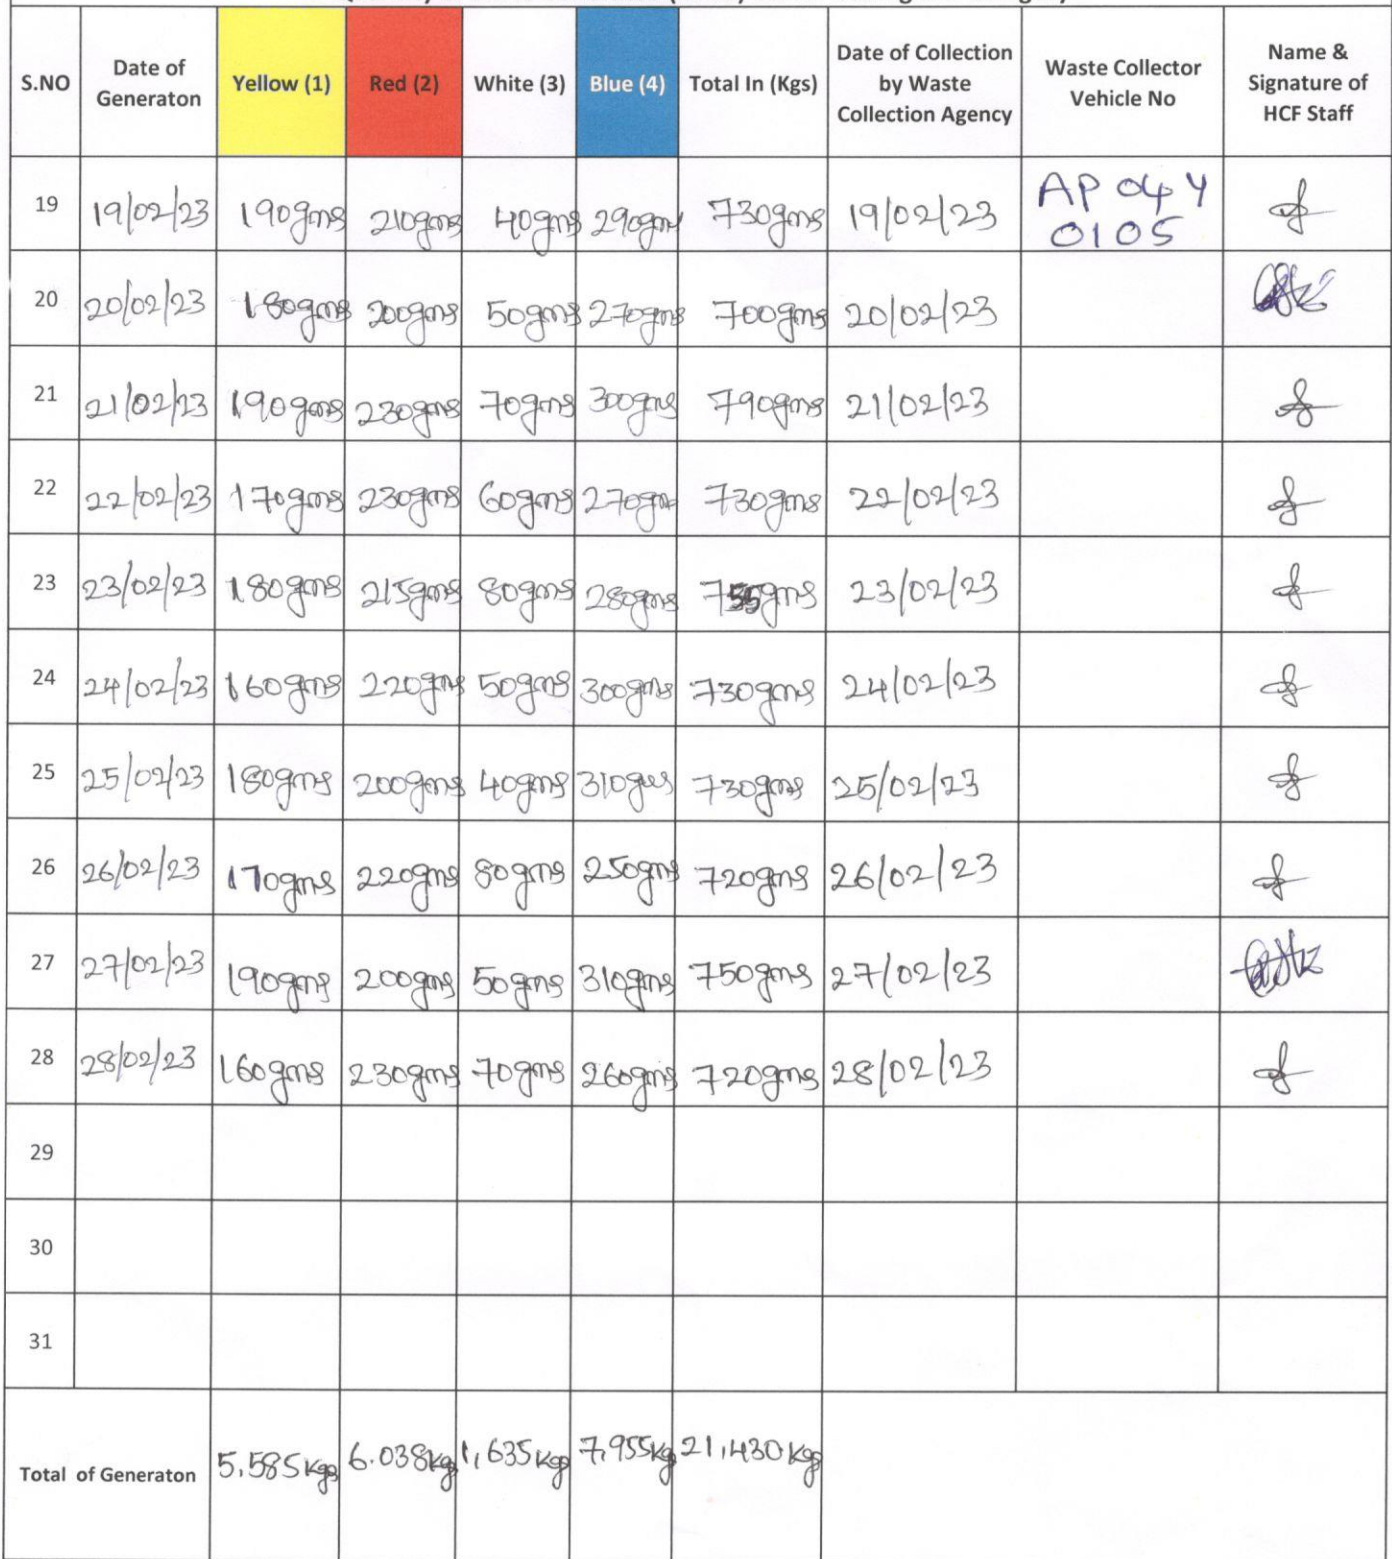 S.NO Date of Generaton Yellow (1) Red (2) White (3) Blue (4) Total In (Kgs) Date of Collection by Waste Collection Agency Waste Collector Vehicle No Name & Signature of HCF Staff
19 19/02/23 190gms 210gms 40gms 290gm 730gms 19/02/23 AP 04 Y 0105
20 20/02/23 180gms 200gms 50gms 270gms 700gms 20/02/23
21 21/02/23 190gms 230gms 70gms 300gms 790gms 21/02/23
22 22/02/23 170gms 230gms 60gms 270gm 730gms 22/02/23
23 23/02/23 180gms 215gms 80gms 280gms 755gms 23/02/23
24 24/02/23 160gms 220gms 50gms 300gms 730gms 24/02/23
25 25/02/23 180gms 200gms 40gms 310gms 730gms 25/02/23
26 26/02/23 170gms 220gms 80gms 250gms 720gms 26/02/23
27 27/02/23 190gms 200gms 50gms 310gms 750gms 27/02/23
28 28/02/23 160gms 230gms 70gms 260gms 720gms 28/02/23
29
30
31
Total of Generaton 5,585kgs 6.038kg 1,635kg 7,955kg 21,430kgs